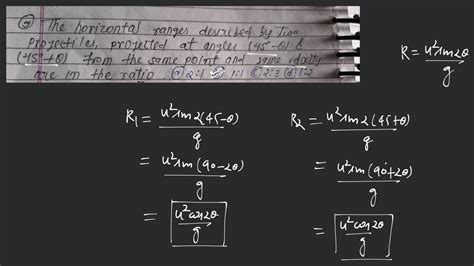 ⑨ The horizontal ranges described by two
projectiles, projected at angles (45°-θ) &
(45°+θ) from the same point and same velocity
are in the ratio (a) 2:1 1:1 (c) 2:3 (d) 1:2
R = u²sin2θ/g
R₁ = u²sin2(45-θ)/g
= u²sin(90-2θ)/g
= u²cos2θ/g
R₂ = u²sin2(45+θ)/g
= u²sin(90+2θ)/g
= u²cos2θ/g